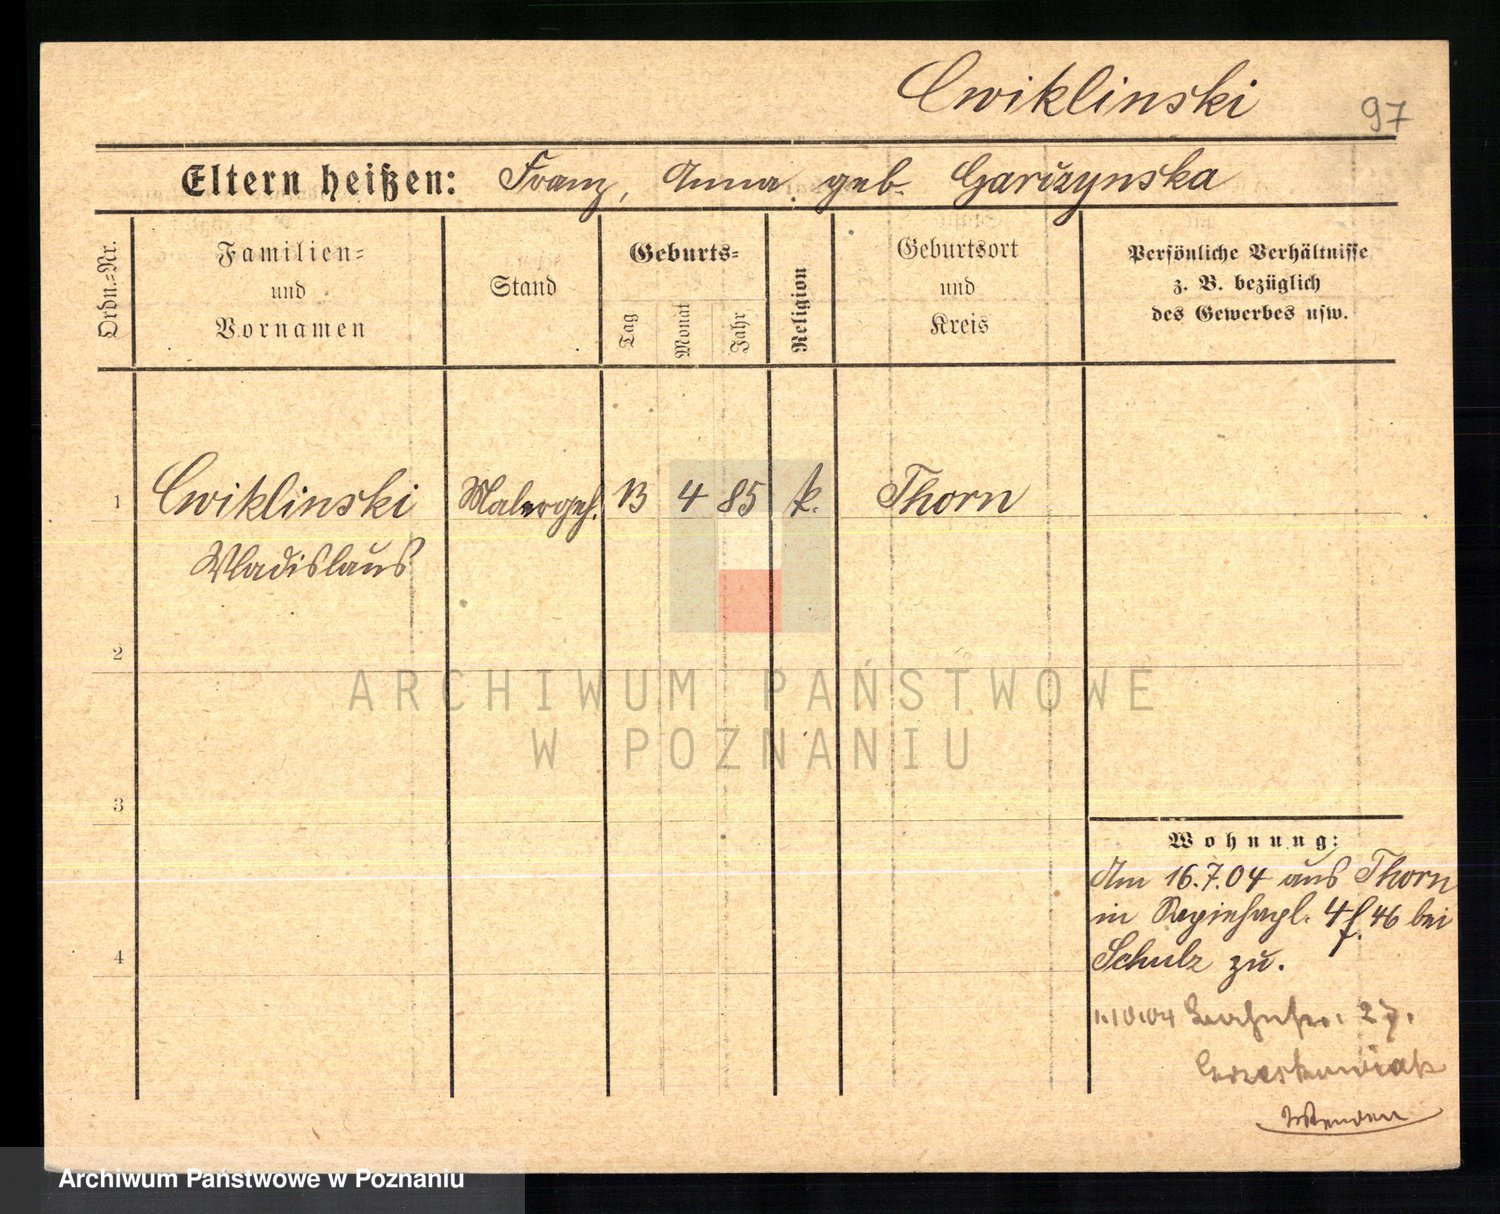 Cwiklinski
97
Eltern heißen: Franz, Anna geb. Garizynska
Ordn.-Nr.
Familien-
und
Vornamen
Stand
Geburts-
Tag
Monat
Jahr
Religion
Geburtsort
und
Kreis
Persönliche Verhältnisse
z. B. bezüglich
des Gewerbes usw.
1 Cwiklinski Malergeh. 13 4 85 k. Thorn
Wladislaus
2
3
4
ARCHIWUM PAŃSTWOWE
W POZNANIU
Wohnung:
Am 16.7.04 aus Thorn
in 46 bei
Schulz zu.
1.10.04 27.
Wenden
Archiwum Państwowe w Poznaniu